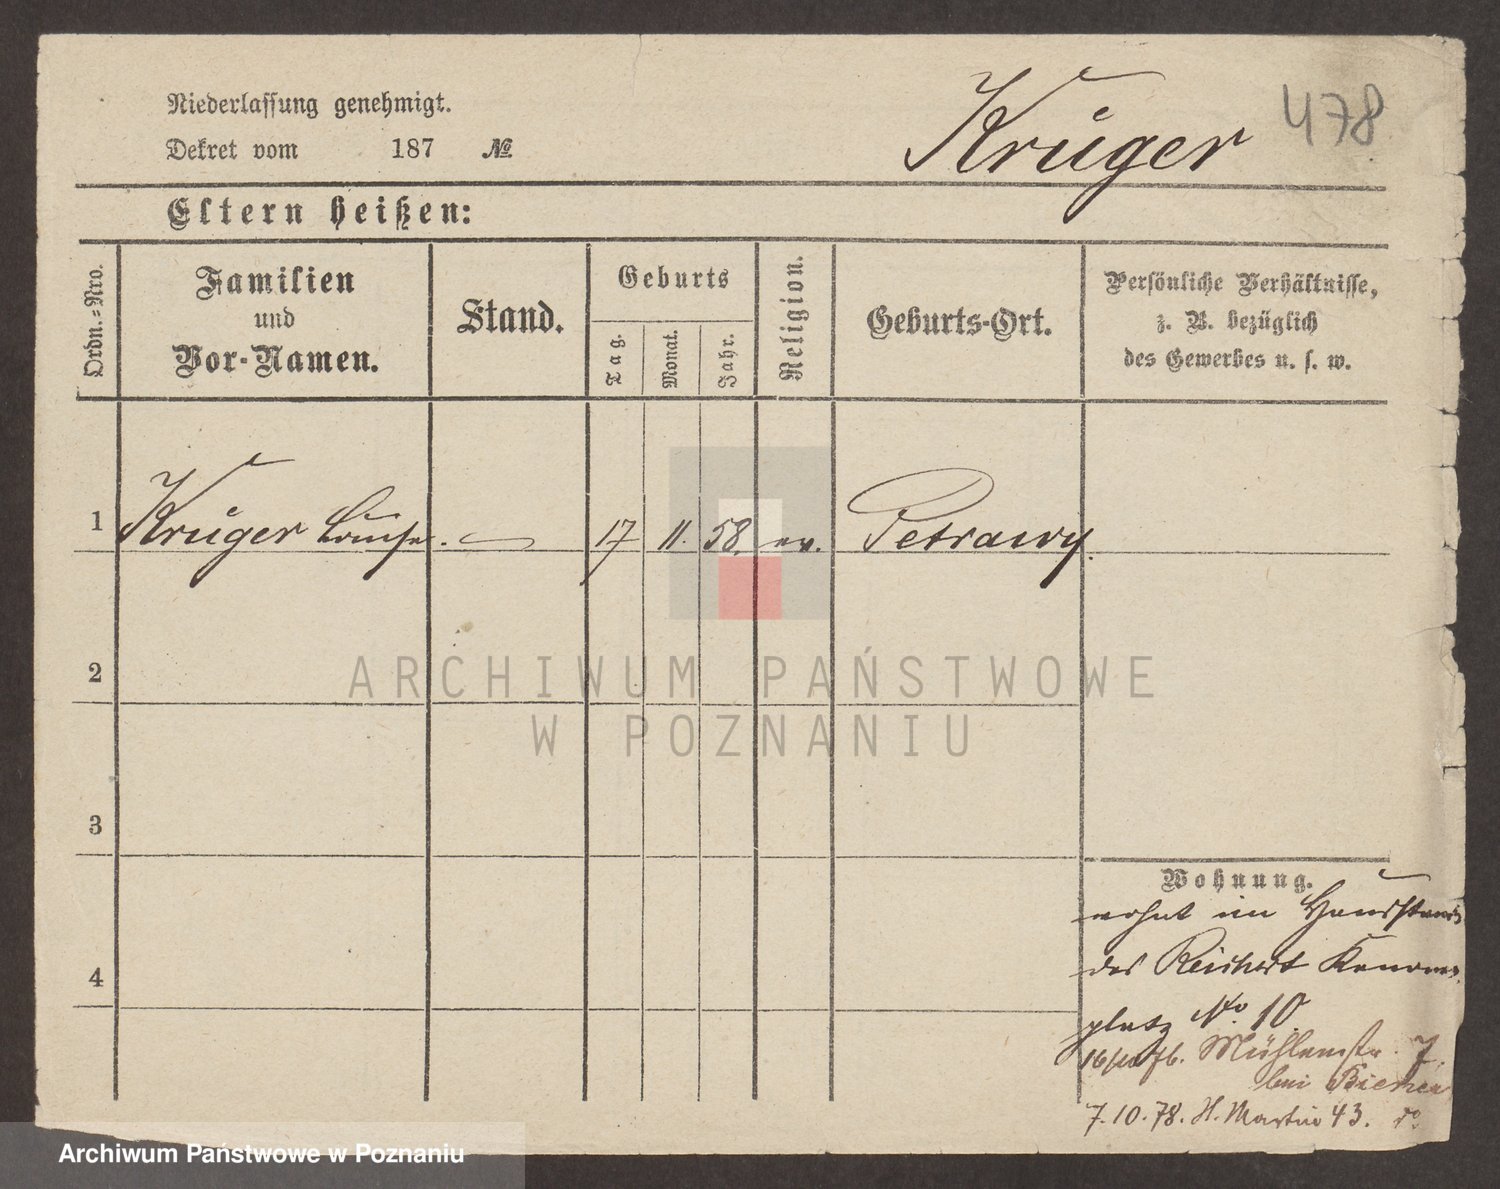 Niederlassung genehmigt.
Dekret vom 187 №
Krüger 478
Eltern heißen:
Ordn.-Nro.
Familien
und
Vor-Namen.
Stand.
Geburts
Tag.
Monat.
Jahr.
Religion.
Geburts-Ort.
Persönliche Verhältnisse,
z. B. bezüglich
des Gewerbes u. s. w.
1 Krüger Louise. — 17 11. 58. ev. Petrawy.
2
ARCHIWUM PAŃSTWOWE
W POZNANIU
3
Wohnung.
wohnt im Hausstand
des Reichert Kanonen
4
platz No. 10
76. Mühlenstr. 7.
bei
7.10.78. St. Martin 43.
Archiwum Państwowe w Poznaniu